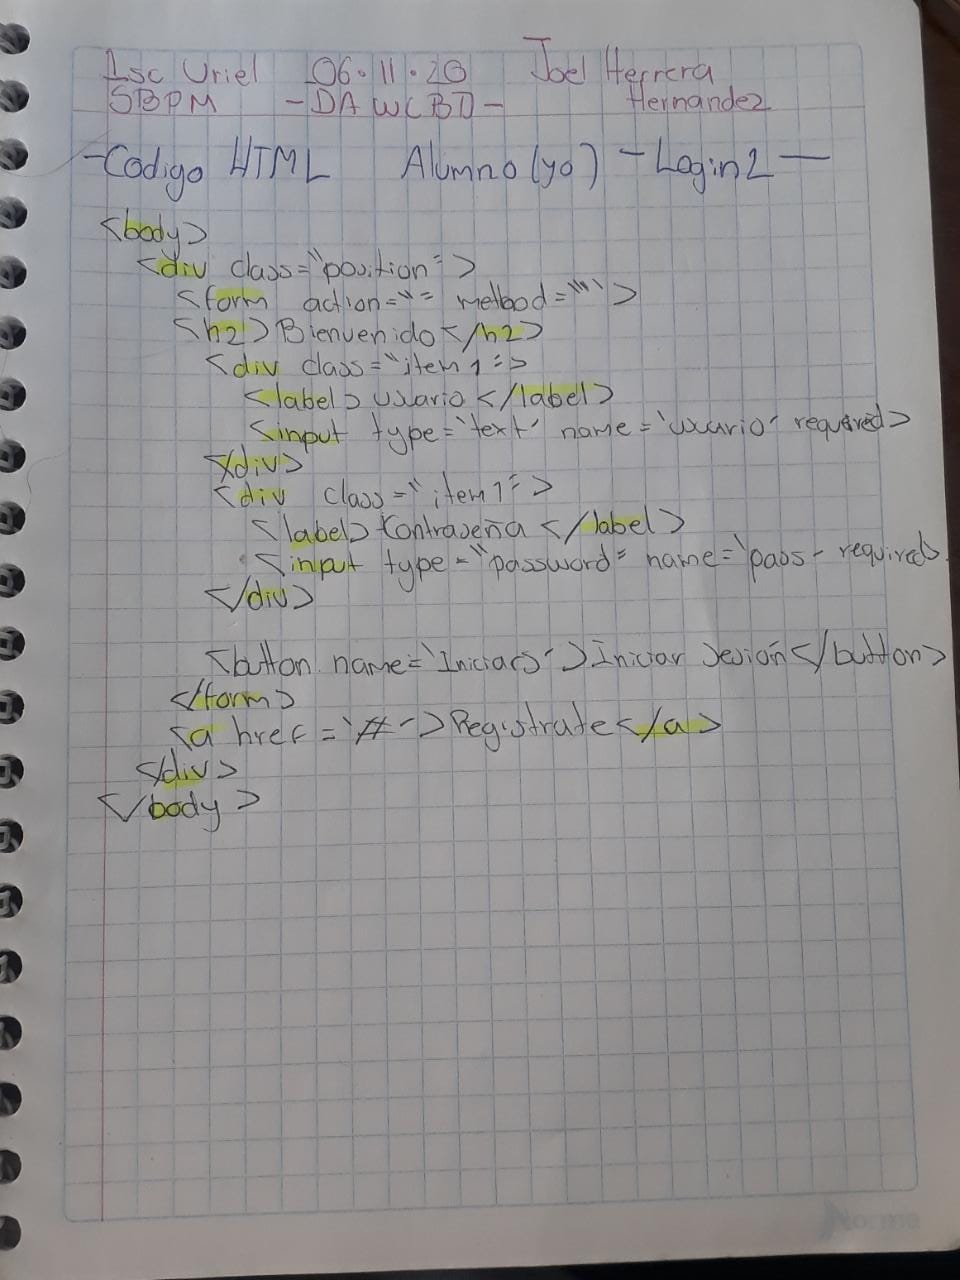 Isc Uriel 06.11.20 Joel Herrera
5BPM -DAWCBD- Hernandez
-Codigo HTML Alumno (yo) - Login2 -
<body>
<div class="position">
<form action="" method="">
<h2>Bienvenido</h2>
<div class="item1">
<label>Usuario</label>
<input type='text' name='usuario' required>
</div>
<div class="item1">
<label>Contraseña</label>
<input type="password" name='pass' required>
</div>
<button name='Iniciars'>Iniciar Sesión</button>
</form>
<a href='#'>Registrate</a>
</div>
</body>
Norma